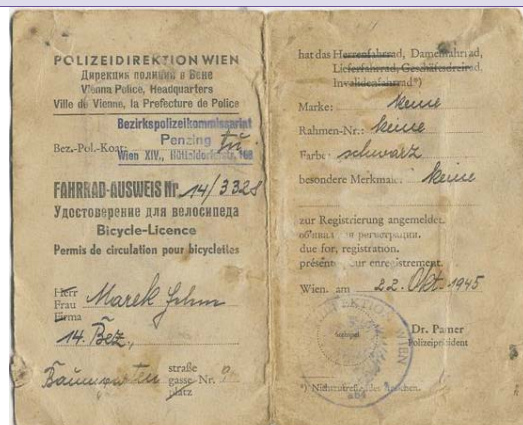 POLIZEIDIREKTION WIEN
Дирекция полиции в Вене
Vienna Police, Headquarters
Ville de Vienne, la Prefecture de Police
Bezirkspolizeikommissariat
Bez.-Pol.-Koat: Penzing
Wien XIV.,
FAHRRAD-AUSWEIS Nr. 14/3328
Удостоверение для велосипеда
Bicycle-Licence
Permis de circulation pour bicyclettes
Herr
Frau Marek
Firma
14. Bez.,
straße
gasse Nr.
platz
hat das Herrenfahrrad, Damenfahrrad,
Lieferfahrrad, Geschäftsdreirad,
Invalidenfahrrad*)
Marke: keine
Rahmen-Nr.: keine
Farbe: schwarz
besondere Merkmale: keine
zur Registrierung angemeldet.
due for, registration.
présenté pour enregistrement.
Wien, am 22. Okt. 1945
Dr. Pamer
Polizeipräsident
*) Nichtzutreffendes streichen.